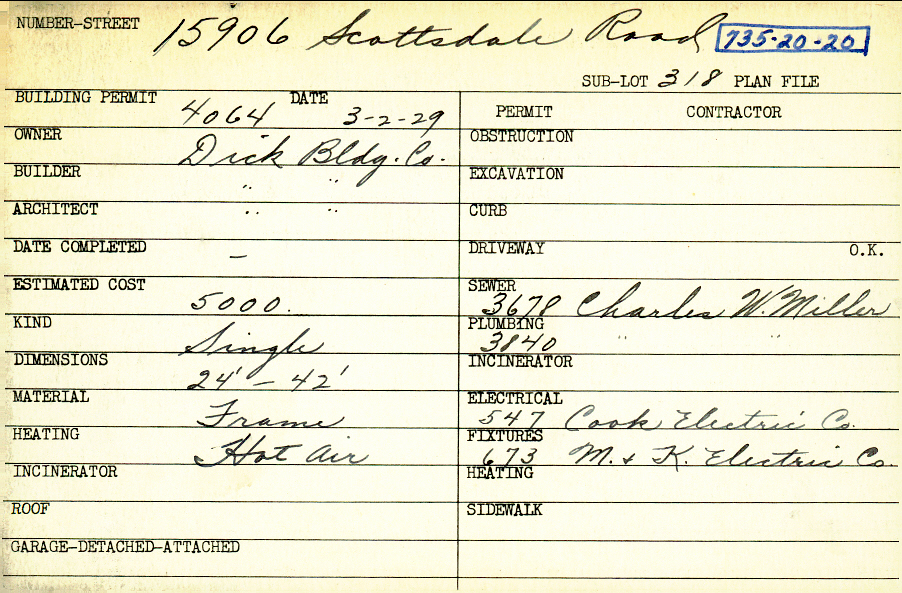 NUMBER-STREET 15906 Scottsdale Road 735-20-20
SUB-LOT 318 PLAN FILE
BUILDING PERMIT 4064 DATE 3-2-29
OWNER Dick Bldg. Co.
BUILDER " "
ARCHITECT " "
DATE COMPLETED –
ESTIMATED COST 5000.
KIND Single
DIMENSIONS 24' – 42'
MATERIAL Frame
HEATING Hot Air
INCINERATOR
ROOF
GARAGE-DETACHED-ATTACHED
PERMIT CONTRACTOR
OBSTRUCTION
EXCAVATION
CURB
DRIVEWAY O.K.
SEWER 3678 Charles W. Miller
PLUMBING 3840 " "
INCINERATOR
ELECTRICAL 547 Cook Electric Co.
FIXTURES 673 M. & K. Electric Co.
HEATING
SIDEWALK